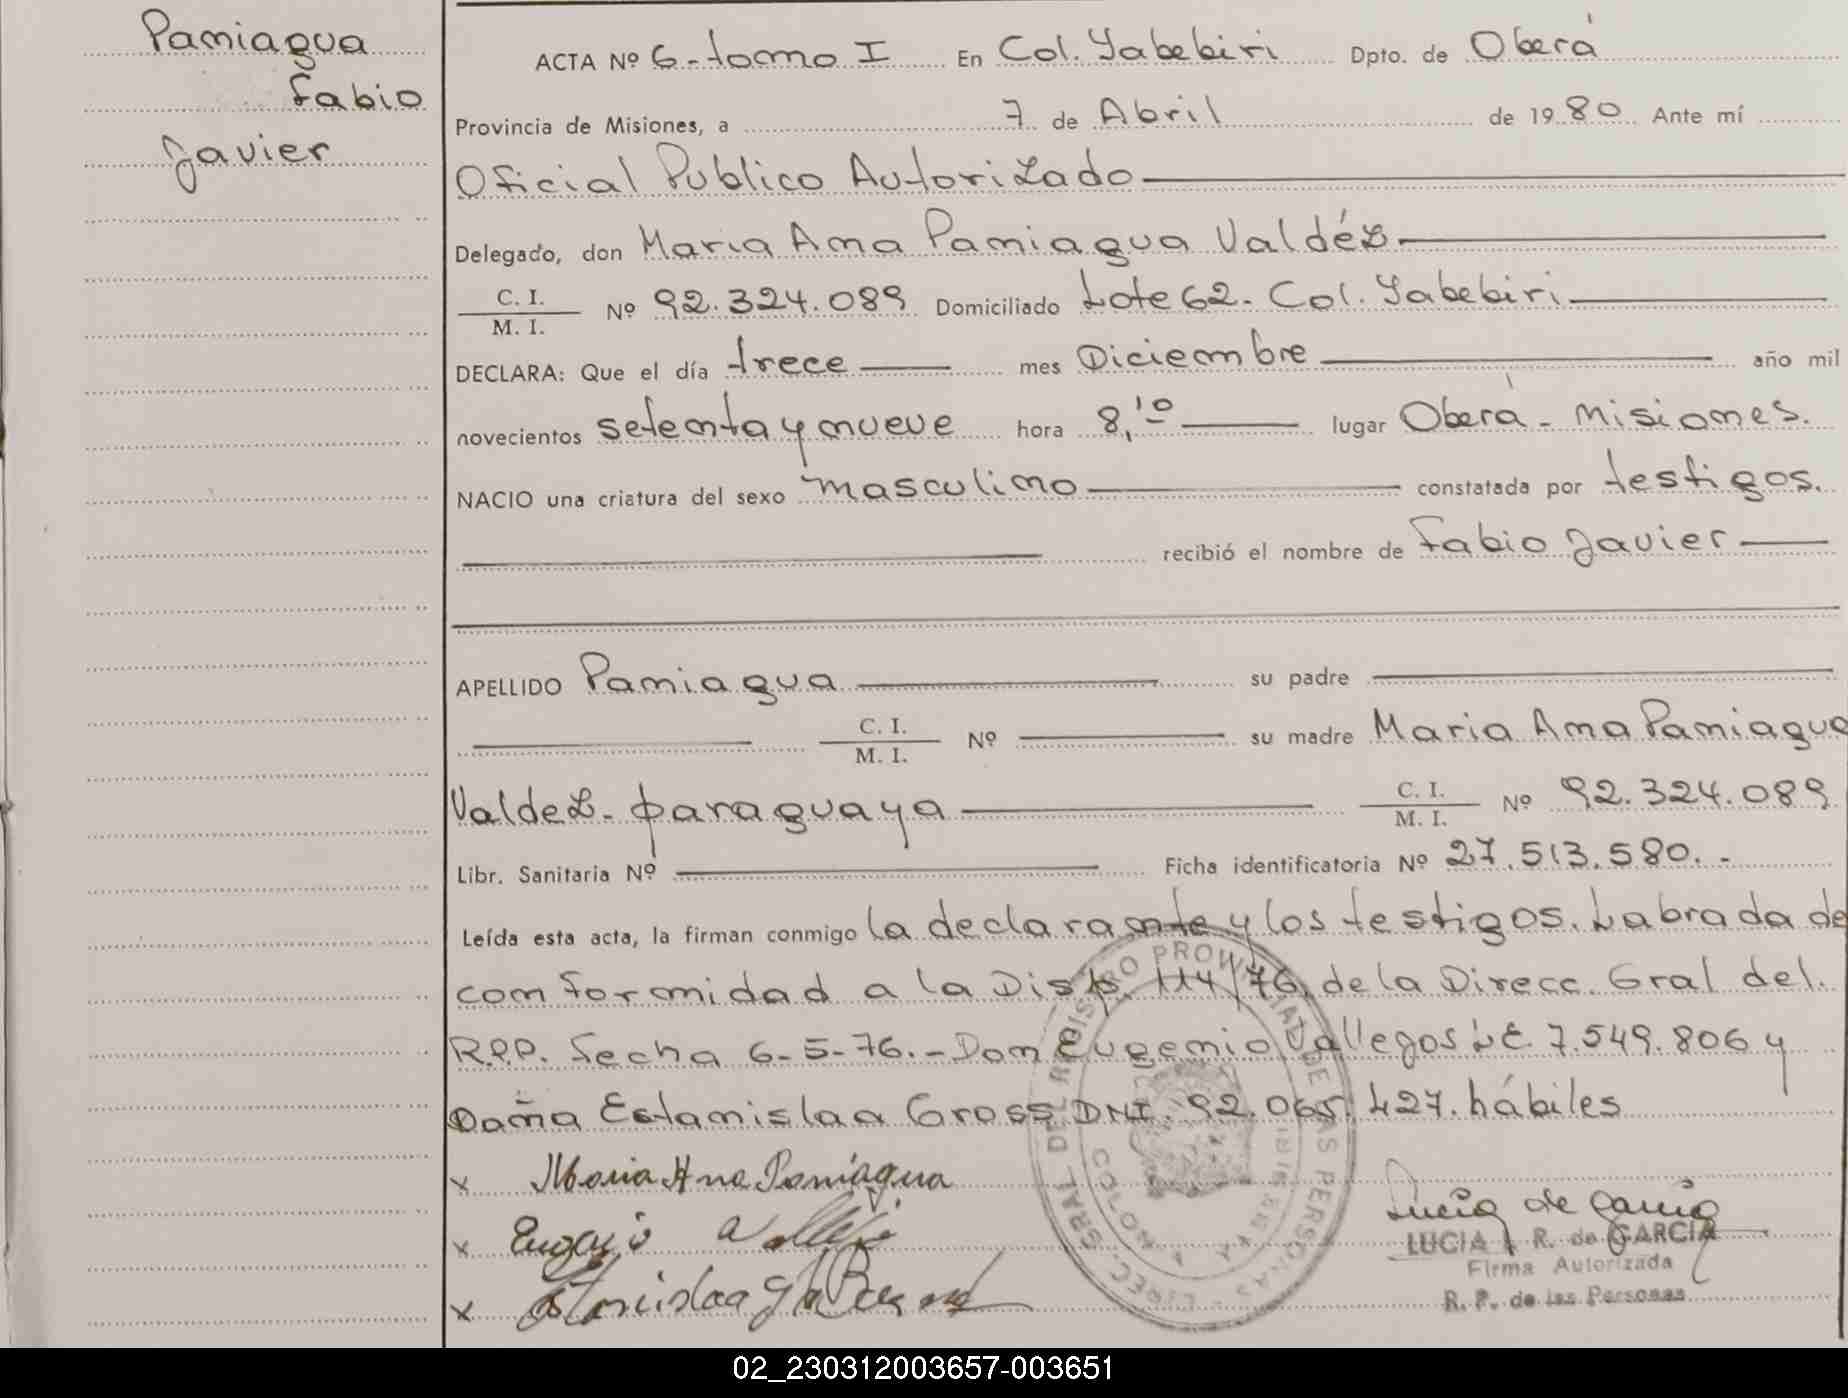 Paniagua
Fabio
Javier
ACTA Nº 6-tomo I En Col. Yabebiri Dpto. de Oberá
Provincia de Misiones, a 7 de Abril de 1980 Ante mí
Oficial Publico Autorizado
Delegado, don Maria Ana Paniagua Valdéz
C. I.
M. I. Nº 92.324.089 Domiciliado Lote 62- Col. Yabebiri
DECLARA: Que el día trece mes Diciembre año mil
novecientos setenta y nueve hora 8,10 lugar Oberá - Misiones.
NACIO una criatura del sexo masculino constatada por testigos.
recibió el nombre de Fabio Javier
APELLIDO Paniagua su padre
C. I.
M. I. Nº su madre Maria Ana Paniagua
Valdez- paraguaya C. I.
M. I. Nº 92.324.089
Libr. Sanitaria Nº Ficha identificatoria Nº 27.513.580.-
Leída esta acta, la firman conmigo la declarante y los testigos. Labrada de
conformidad a la Disp. 114/76, de la Direcc. Gral del.
R.P.P. fecha 6-5-76.- Don Eugenio Vallejos L.E. 7.549.806 y
Doña Estanislaa Gross DNI. 92.065.427. hábiles
x Maria Ana Paniagua
x Eugenio
x Estanislaa
DIREC. GRAL. DEL REGISTRO PROVINCIAL DE LAS PERSONAS
Lucia de Garcia
LUCIA R. de GARCIA
Firma Autorizada
R. P. de las Personas
02_230312003657-003651